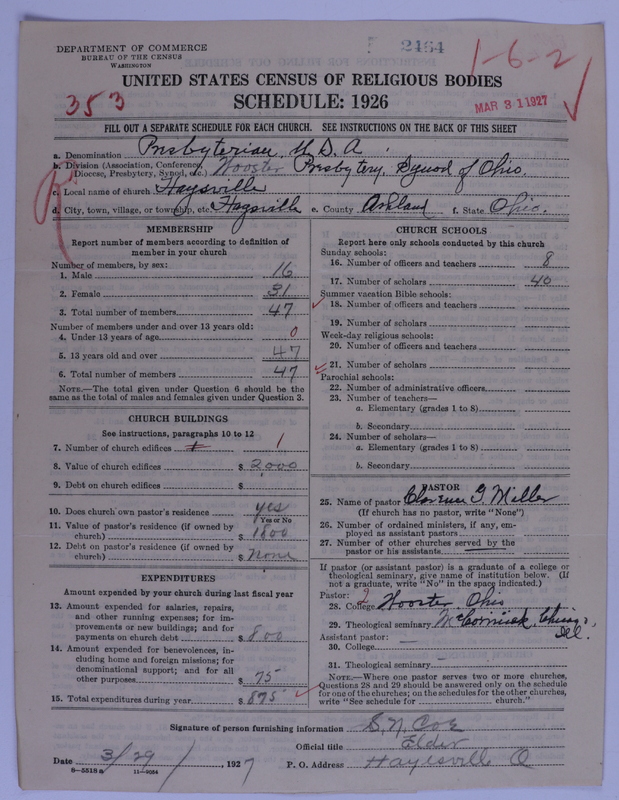 DEPARTMENT OF COMMERCE
BUREAU OF THE CENSUS
WASHINGTON
2464
1-6-2
UNITED STATES CENSUS OF RELIGIOUS BODIES
353
SCHEDULE: 1926
MAR 31 1927
FILL OUT A SEPARATE SCHEDULE FOR EACH CHURCH. SEE INSTRUCTIONS ON THE BACK OF THIS SHEET
a. Denomination Presbyterian U.S.A.
b. Division (Association, Conference, Diocese, Presbytery, Synod, etc.) Wooster Presbytery, Synod of Ohio.
c. Local name of church Haysville
d. City, town, village, or township, etc. Haysville e. County Ashland f. State Ohio.
MEMBERSHIP
Report number of members according to definition of
member in your church
Number of members, by sex:
1. Male 16
2. Female 31
3. Total number of members 47
Number of members under and over 13 years old:
4. Under 13 years of age 0
5. 13 years old and over 47
6. Total number of members 47
NOTE.—The total given under Question 6 should be
same as the total of males and females given under Question 3.
CHURCH BUILDINGS
See instructions, paragraphs 10 to 12
7. Number of church edifices 1
8. Value of church edifices $ 2,000
9. Debt on church edifices $
10. Does church own pastor's residence yes
Yes or No
11. Value of pastor's residence (if owned by
church) $ 1800
12. Debt on pastor's residence (if owned by
church) $ None
EXPENDITURES
Amount expended by your church during last fiscal year
13. Amount expended for salaries, repairs,
and other running expenses; for im-
provements or new buildings; and for
payments on church debt $ 800
14. Amount expended for benevolences, in-
cluding home and foreign missions; for
denominational support; and for all
other purposes $ 75
15. Total expenditures during year $ 875
CHURCH SCHOOLS
Report here only schools conducted by this church
Sunday schools:
16. Number of officers and teachers 8
17. Number of scholars 40
Summer vacation Bible schools:
18. Number of officers and teachers
19. Number of scholars
Week-day religious schools:
20. Number of officers and teachers
21. Number of scholars
Parochial schools:
22. Number of administrative officers
23. Number of teachers—
a. Elementary (grades 1 to 8)
b. Secondary
24. Number of scholars—
a. Elementary (grades 1 to 8)
b. Secondary
PASTOR
25. Name of pastor Clarence G. Miller
(If church has no pastor, write "None")
26. Number of ordained ministers, if any, em-
ployed as assistant pastors
27. Number of other churches served by the
pastor or his assistants
If pastor (or assistant pastor) is a graduate of a college or
theological seminary, give name of institution below. (If
not a graduate, write "No" in the space indicated.)
Pastor: 2
28. College Wooster, Ohio
29. Theological seminary McCormick, Chicago, Ill.
Assistant pastor:
30. College
31. Theological seminary
NOTE.—Where one pastor serves two or more churches,
Questions 28 and 29 should be answered only on the schedule
for one of the churches; on the schedules for the other churches,
write "See schedule for church."
Signature of person furnishing information S. N. Coe
Official title Elder
Date 3/29/, 1927 P. O. Address Hayesville O
8-5518 a 11-9034